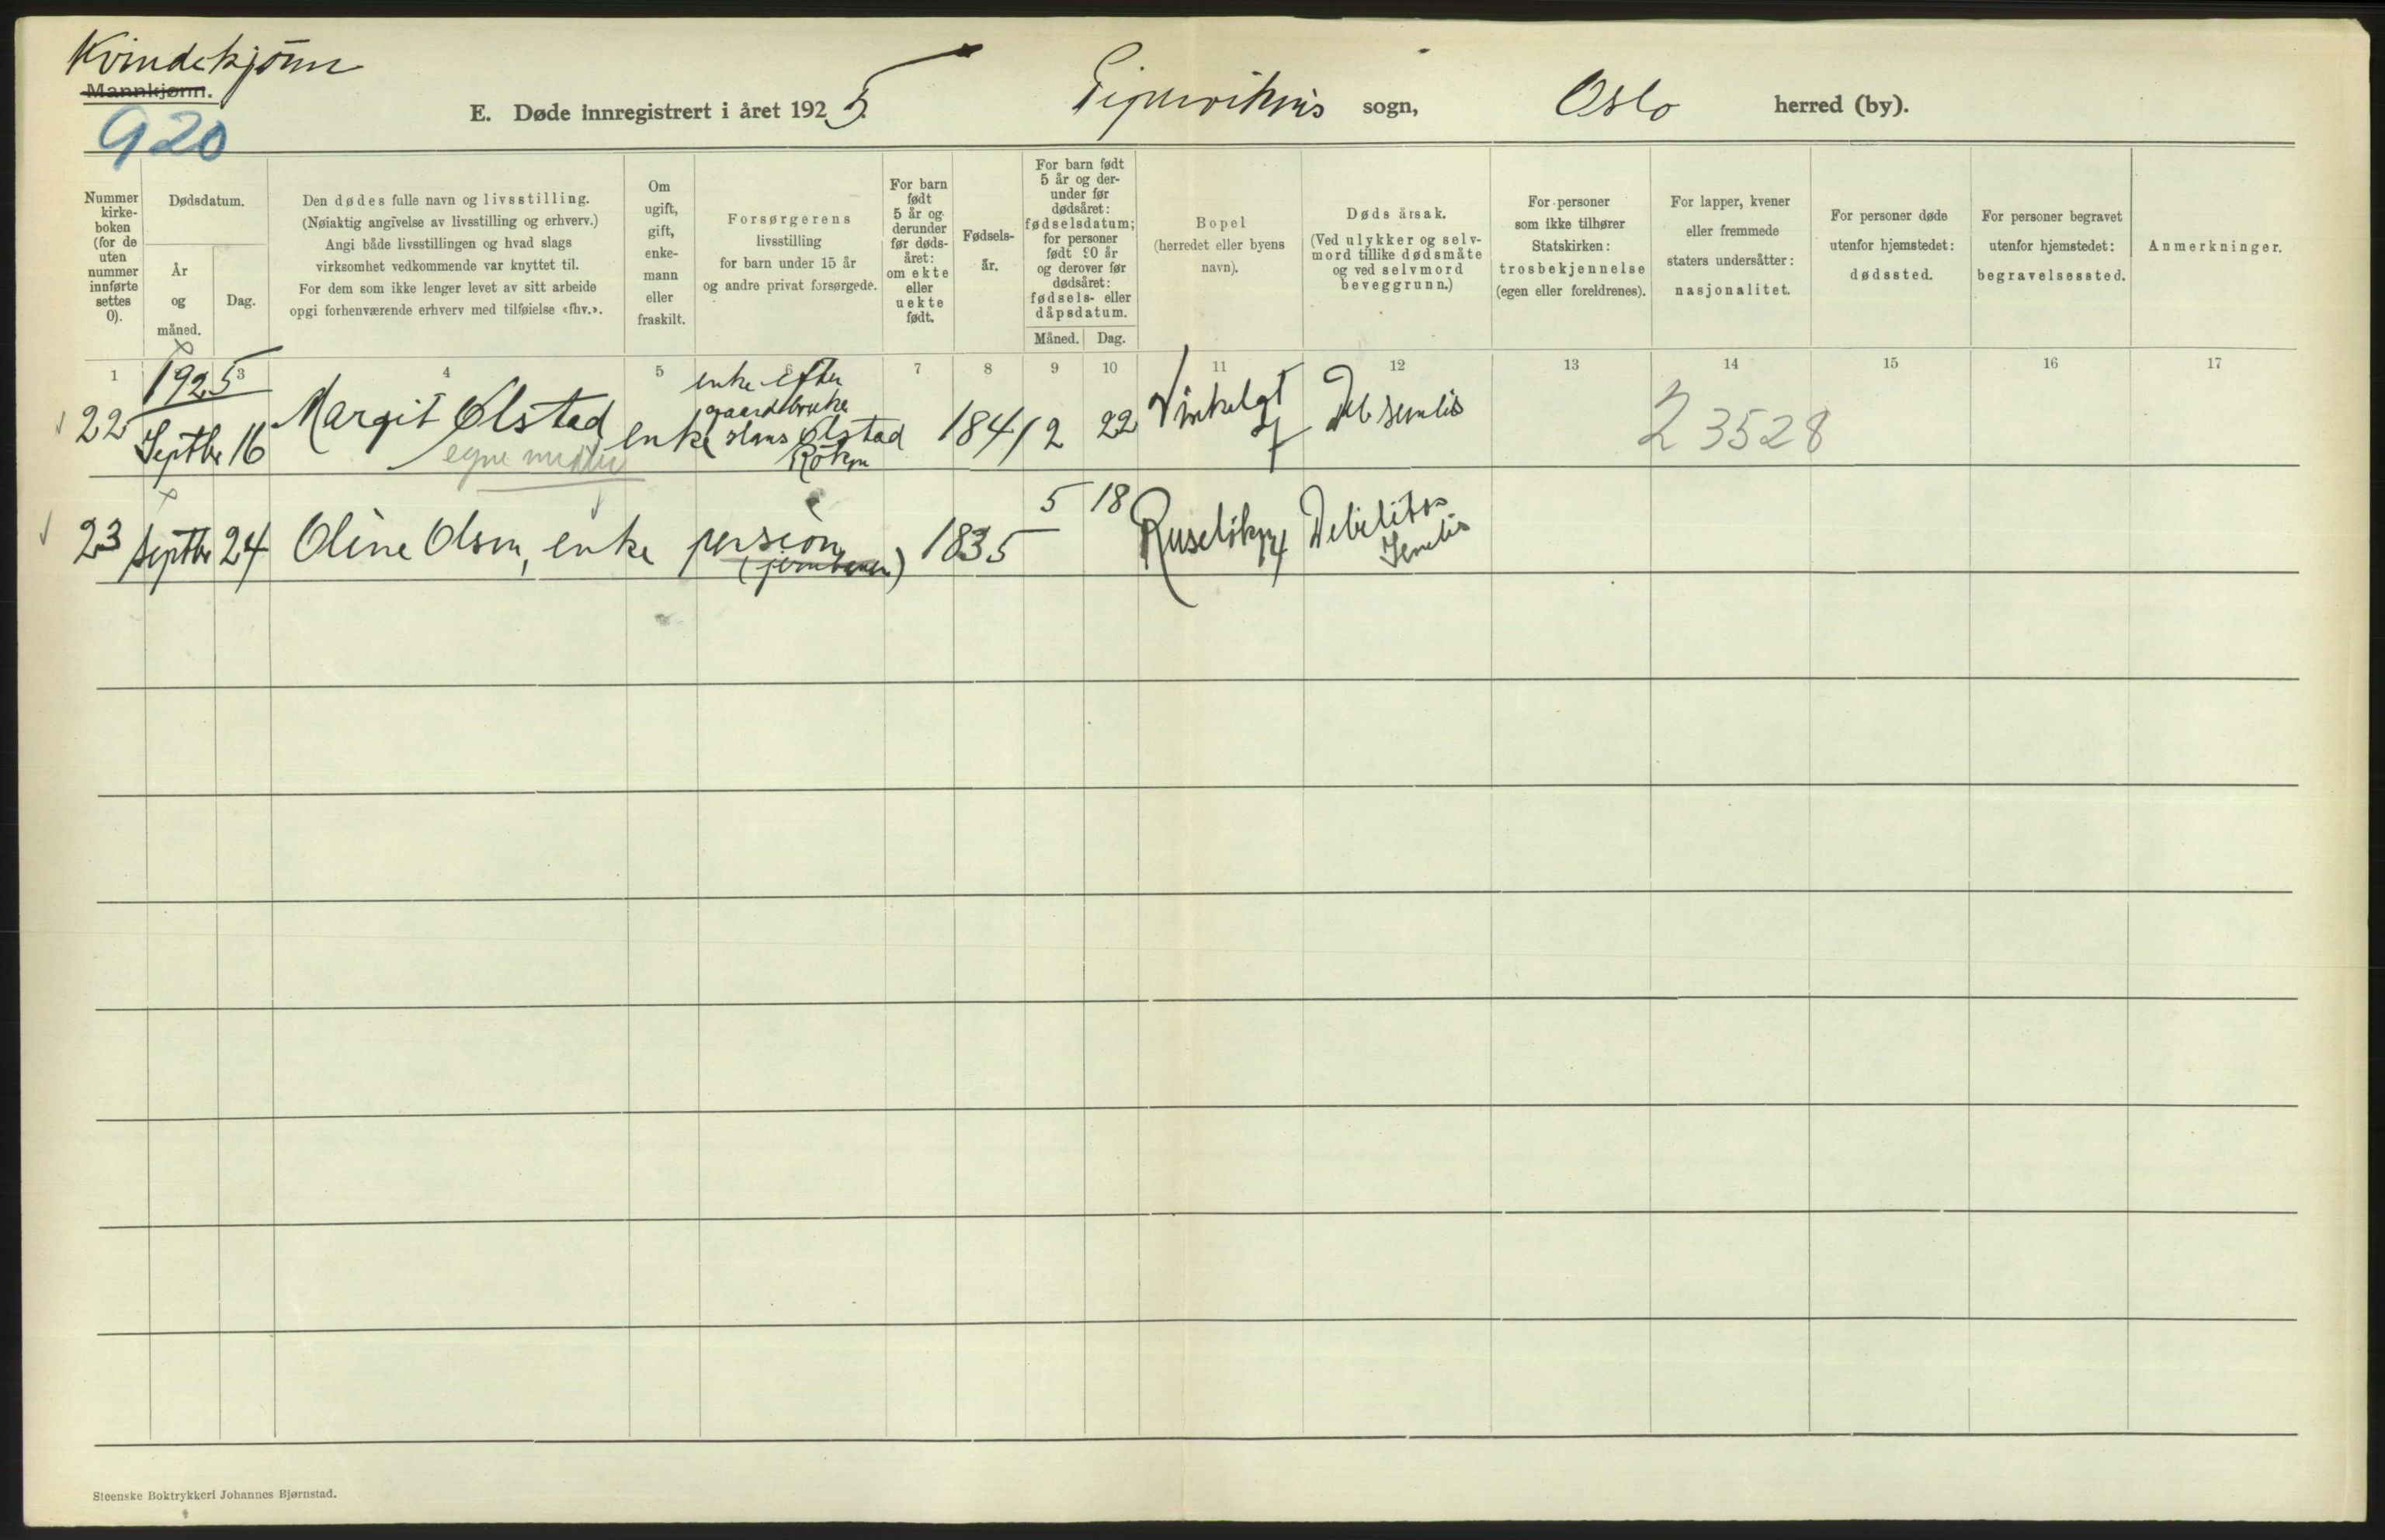 Kvindekjønn
Mannkjønn.
920
E. Døde innregistrert i året 1925 Pipervikens sogn, Oslo herred (by).
Nummer
kirke-
boken
(for de
uten
nummer
innførte
settes
0).
Dødsdatum.
År
og
måned.
Dag.
Den dødes fulle navn og livsstilling.
(Nøiaktig angivelse av livsstilling og erhverv.)
Angi både livsstillingen og hvad slags
virksomhet vedkommende var knyttet til.
For dem som ikke lenger levet av sitt arbeide
opgi forhenværende erhverv med tilføielse «fhv.».
Om
ugift,
gift,
enke-
mann
eller
fraskilt.
Forsørgerens
livsstilling
for barn under 15 år
og andre privat forsørgede.
For barn
født
5 år og
derunder
før døds-
året:
om ekte
eller
uekte
født.
Fødsels-
år.
For barn født
5 år og der-
under før
dødsåret:
fødselsdatum;
for personer
født 90 år
og derover før
dødsåret:
fødsels- eller
dåpsdatum.
Måned. Dag.
Bopel
(herredet eller byens
navn).
Døds årsak.
(Ved ulykker og selv-
mord tillike dødsmåte
og ved selvmord
beveggrunn.)
For personer
som ikke tilhører
Statskirken:
trosbekjennelse
(egen eller foreldrenes).
For lapper, kvener
eller fremmede
staters undersåtter:
nasjonalitet.
For personer døde
utenfor hjemstedet:
dødssted.
For personer begravet
utenfor hjemstedet:
begravelsessted.
Anmerkninger.
1 3 4 5 6 7 8 9 10 11 12 13 14 15 16 17
1925
22 Septbr 16 Margit Ølstad enke
egne midler
enke efter
gaardbruker
Hans Ølstad
Röken
1841 2 22 Vinkelgt
7
Deb senilis
23528
23 Septbr 24 Oline Olsen, enke pension
(jernbanen)
1835 5 18 Ruseløkv Debilitas
Senilis
Steenske Boktrykkeri Johannes Bjørnstad.